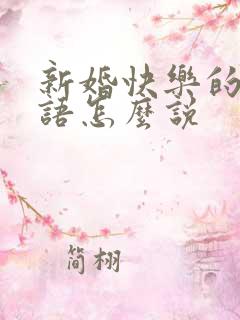 新婚快樂的
語怎麼說
简栩